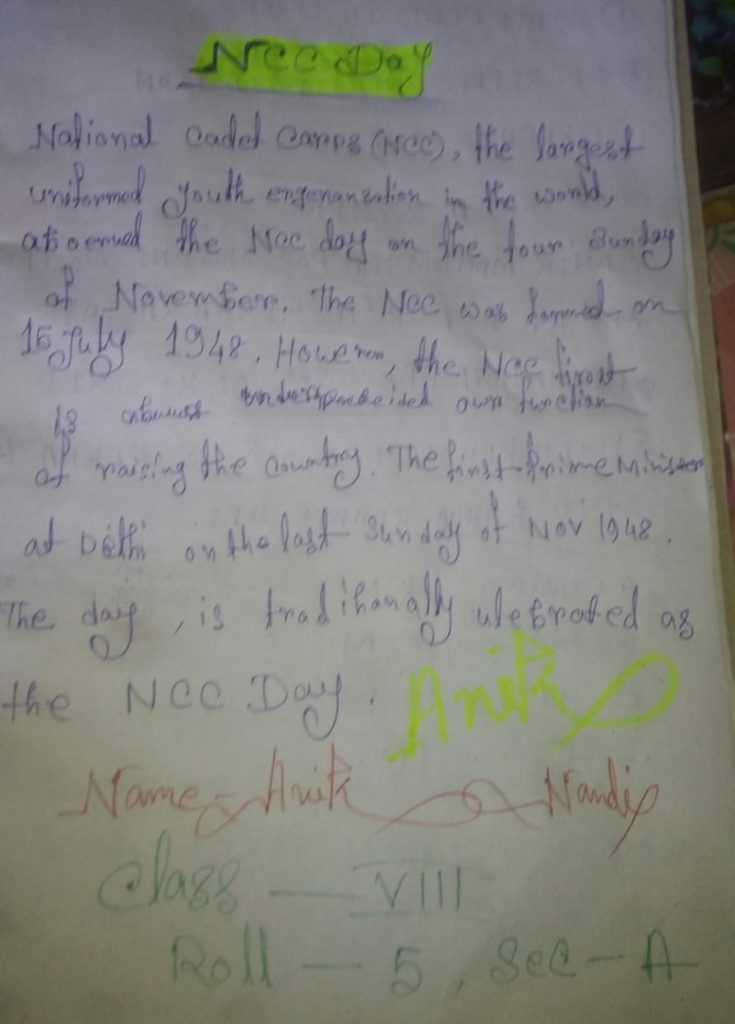 NCC Day
National Cadet Carps (NCC), the largest
uniformed youth engenanzation in the world,
the Ncc day on the four Sunday
of November. The Ncc was formed on
15 July 1948. However, the NCC first
is own function
of raising the country. The first Prime Minister
at Delhi on the last Sunday of Nov 1948.
The day, is traditionally ulebrated as
the NCC Day.
Anik
Name - Anik Nandi
Class — VIII
Roll — 5, Sec - A